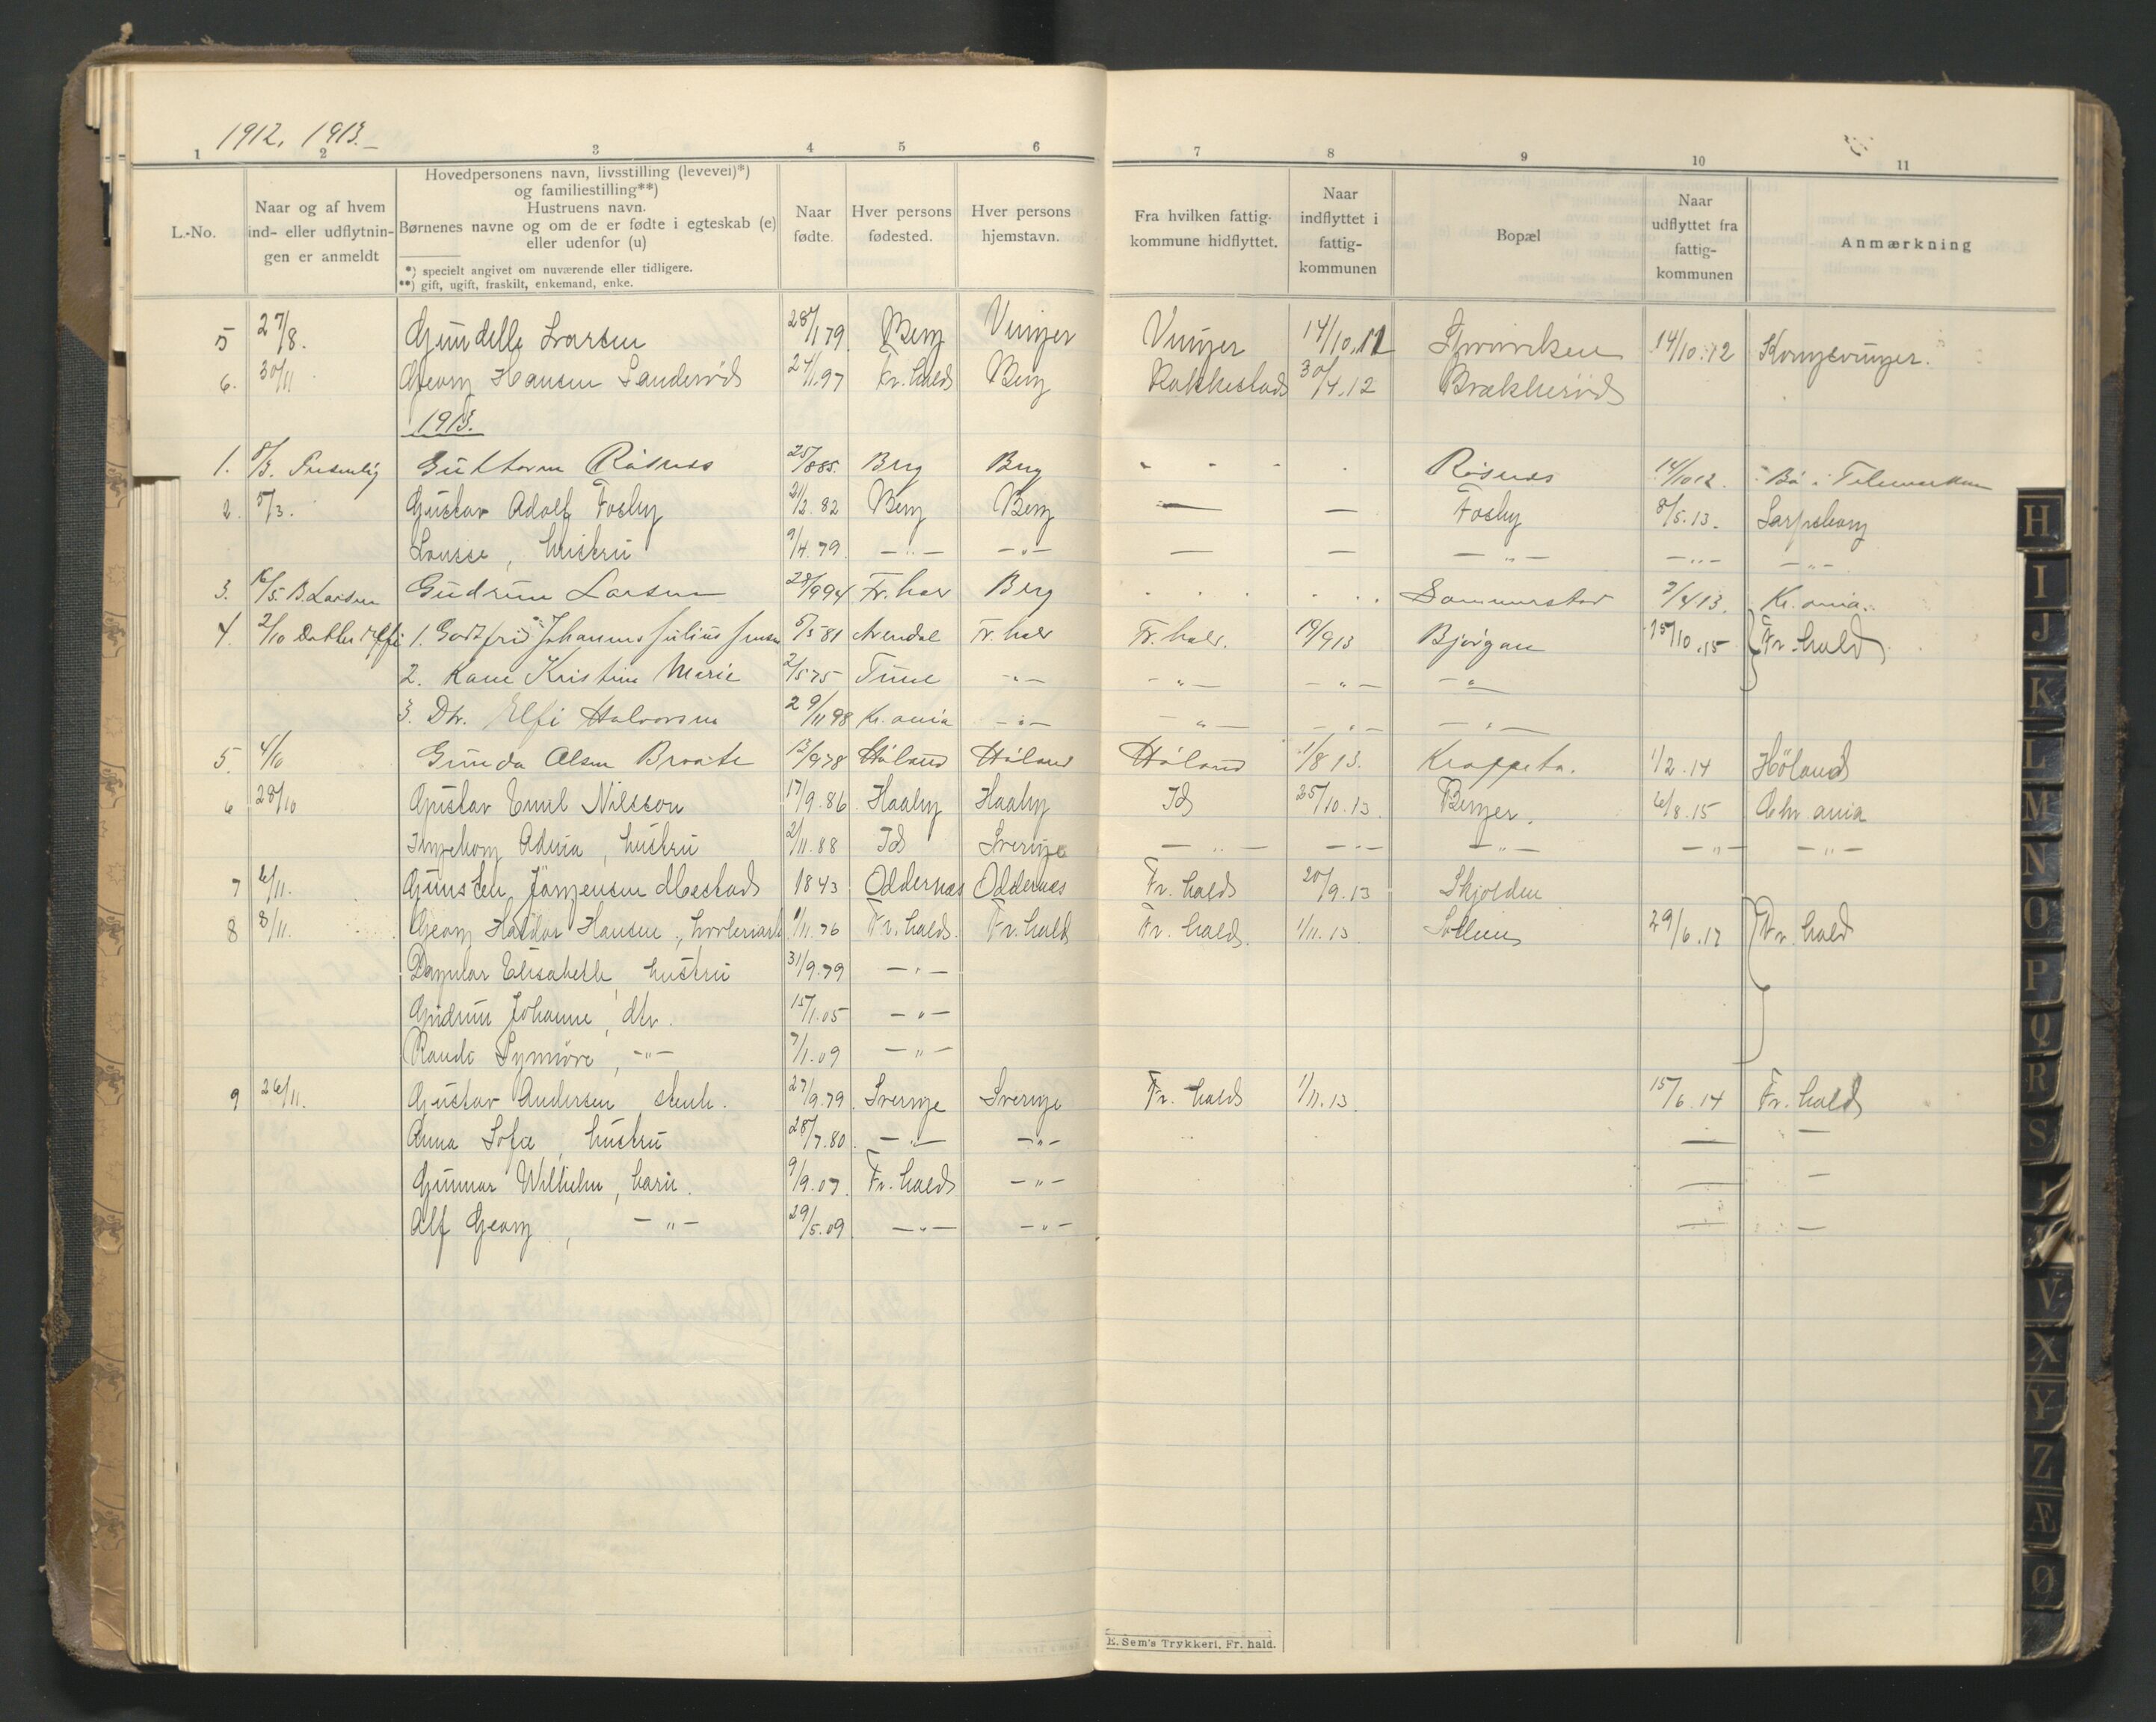 1912. 1913.
1 2 3 4 5 6 7 8 9 10 11
L.-No.
Naar og af hvem ind- eller udflytnin-gen er anmeldt
Hovedpersonens navn, livsstilling (levevei)*)
og familiestilling**)
Hustruens navn.
Børnenes navne og om de er fødte i egteskab (e)
eller udenfor (u)
*) specielt angivet om nuværende eller tidligere.
**) gift, ugift, fraskilt, enkemand, enke.
Naar fødte.
Hver persons fødested.
Hver persons hjemstavn.
Fra hvilken fattig-kommune hidflyttet.
Naar indflyttet i fattig-kommunen
Bopæl
Naar udflyttet fra fattig-kommunen
Anmærkning
5 27/8. Larsen 28/1 79 Berg Vinger Vinger 14/10.12 Kongsvinger.
6. 30/11 Georg Hansen Sanderød 24/1.97 Fr. hald Berg Rakkestad 30/4.12 Brækkerød
1913.
1. 8/3. Guttorm Røsnes 25/8 85. Berg Berg Røsnes 14/10 12. Bø i Telemarken
2. 5/3. Gustav Adolf Fosby 21/2. 82 Berg Berg — — Fosby 8/5.13. Sarpsborg
Lovise, hustru 9/4.79 — " — — " — — — — " — — " — — " —
3. 16/5. B. Larsen Gudrun Larsen 28/9 94 Fr. hald Berg 3/4 13. Kr.ania.
4. 2/10 1. Godtfrid Johannes Julius 5/5 81 Arendal Fr. hald Fr. hald. 19/9 13 Bjørgan 15/10.15 Fr. hald
2. Kristine Marie 2/5 75 Tune — " — — " — — " — — " —
3. Dtr. Elfi Halvorsen 29/11 98 Kr. ania — " — — " — — " — — " —
5. 4/10 Gunda Olsen Braate 13/9 78 Høland Høland Høland 1/8 13. Krappeto. 1/2.14 Høland
6 28/10 Gustav Emil Nilsson 17/9.86 Haaby Haaby Id 25/10.13. Berger. 6/8.15 Chr.ania
Ingeborg , hustru 2/11.88 Id Sverige — " — — " — — " — — " — — " —
7 6/11. Gunsten Jörgensen 1843 Oddernæs Oddernæs Fr. hald 20/9.13 Skjolden
8 8/11. Georg Hansen, 1/11.76 Fr. hald. Fr. hald Fr. hald. 1/11.13 29/6.17 Fr. hald
Dagmar Elisabeth, hustru 31/9.79 — " —
Gudrun Johanne, dtr. 15/1.05 — " —
Synnöve, — " — 7/1.09 — " —
9 26/11. Gustav Andersen 27/9.79 Sverige Sverige Fr. hald 1/11.13. 15/6.14 Fr. hald
Anna Sofie, hustru 28/7.80 — " — — " — — —
Gunnar Wilhelm, barn. 9/9.07. Fr. hald — " — — —
Alf Georg, — " — 29/5.09 — " — — " — — —
E. Sem's Trykkeri, Fr. hald.
H
I
J
K
L
M
N
O
P
Q
R
S
V
X
Y
Z
Æ
Ø